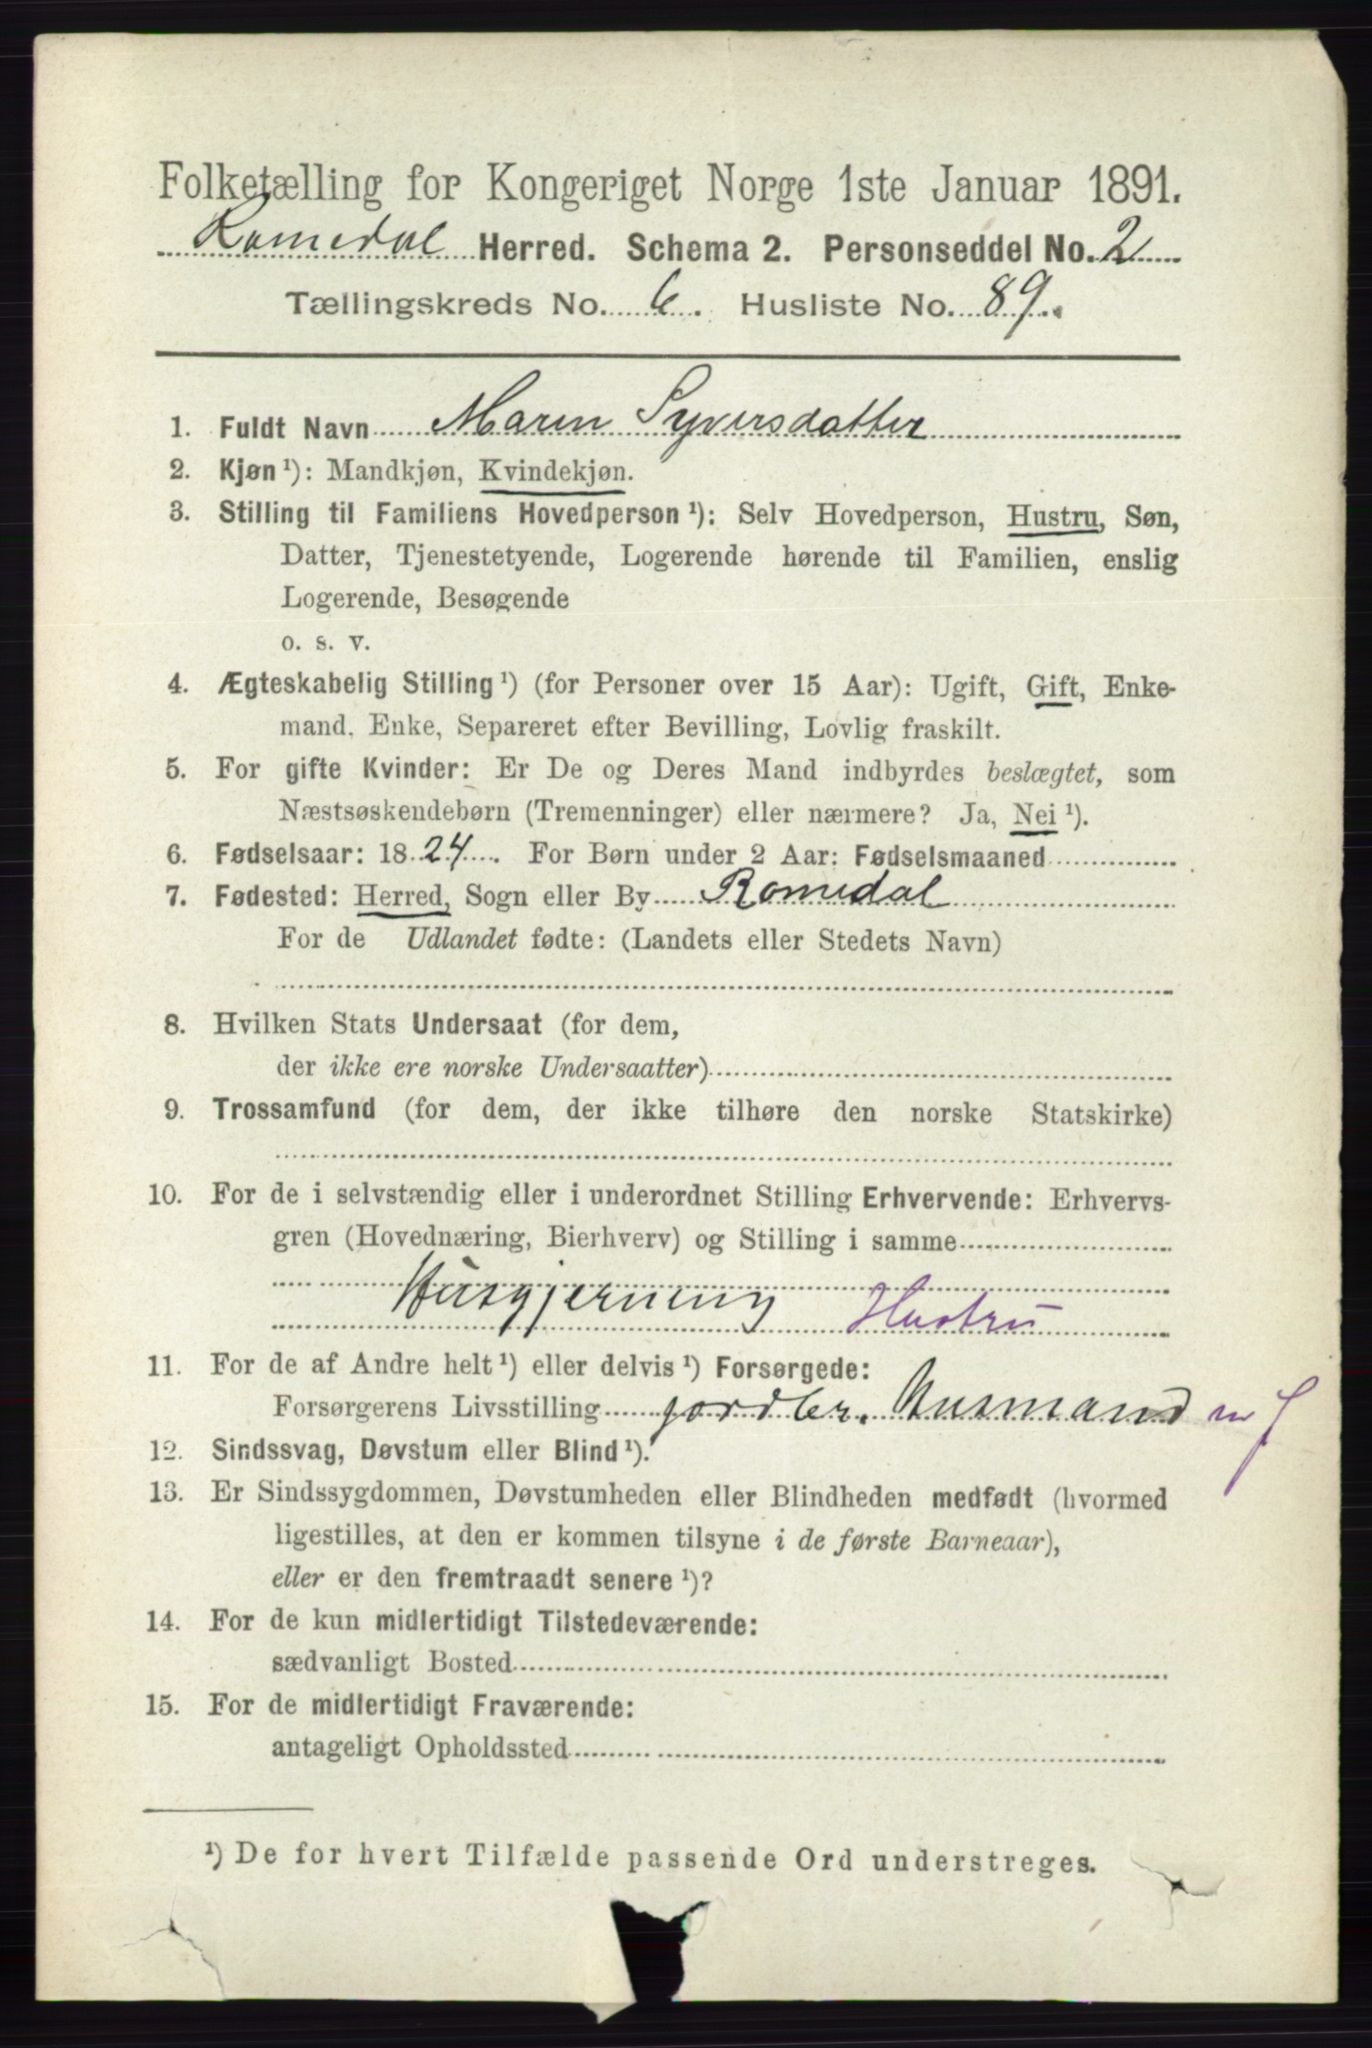 Folketælling for Kongeriget Norge 1ste Januar 1891.
Romedal Herred. Schema 2. Personseddel No. 2
Tællingskreds No. 6. Husliste No. 89.
1. Fuldt Navn Maren Syversdatter
2. Kjøn ¹): Mandkjøn, Kvindekjøn.
3. Stilling til Familiens Hovedperson ¹): Selv Hovedperson, Hustru, Søn,
Datter, Tjenestetyende, Logerende hørende til Familien, enslig
Logerende, Besøgende
o. s. v.
4. Ægteskabelig Stilling ¹) (for Personer over 15 Aar): Ugift, Gift, Enke-
mand, Enke, Separeret efter Bevilling, Lovlig fraskilt.
5. For gifte Kvinder: Er De og Deres Mand indbyrdes beslægtet, som
Næstsøskendebørn (Tremenninger) eller nærmere? Ja, Nei ¹).
6. Fødselsaar: 1824. For Børn under 2 Aar: Fødselsmaaned
7. Fødested: Herred, Sogn eller By Romedal
For de Udlandet fødte: (Landets eller Stedets Navn)
8. Hvilken Stats Undersaat (for dem,
der ikke ere norske Undersaatter)
9. Trossamfund (for dem, der ikke tilhøre den norske Statskirke)
10. For de i selvstændig eller i underordnet Stilling Erhvervende: Erhvervs-
gren (Hovednæring, Bierhverv) og Stilling i samme
Husgjerning Hustru
11. For de af Andre helt ¹) eller delvis ¹) Forsørgede:
Forsørgerens Livsstilling jordbr. Husmand m J
12. Sindssvag, Døvstum eller Blind ¹).
13. Er Sindssygdommen, Døvstumheden eller Blindheden medfødt (hvormed
ligestilles, at den er kommen tilsyne i de første Barneaar),
eller er den fremtraadt senere ¹)?
14. For de kun midlertidigt Tilstedeværende:
sædvanligt Bosted
15. For de midlertidigt Fraværende:
antageligt Opholdssted
¹) De for hvert Tilfælde passende Ord understreges.